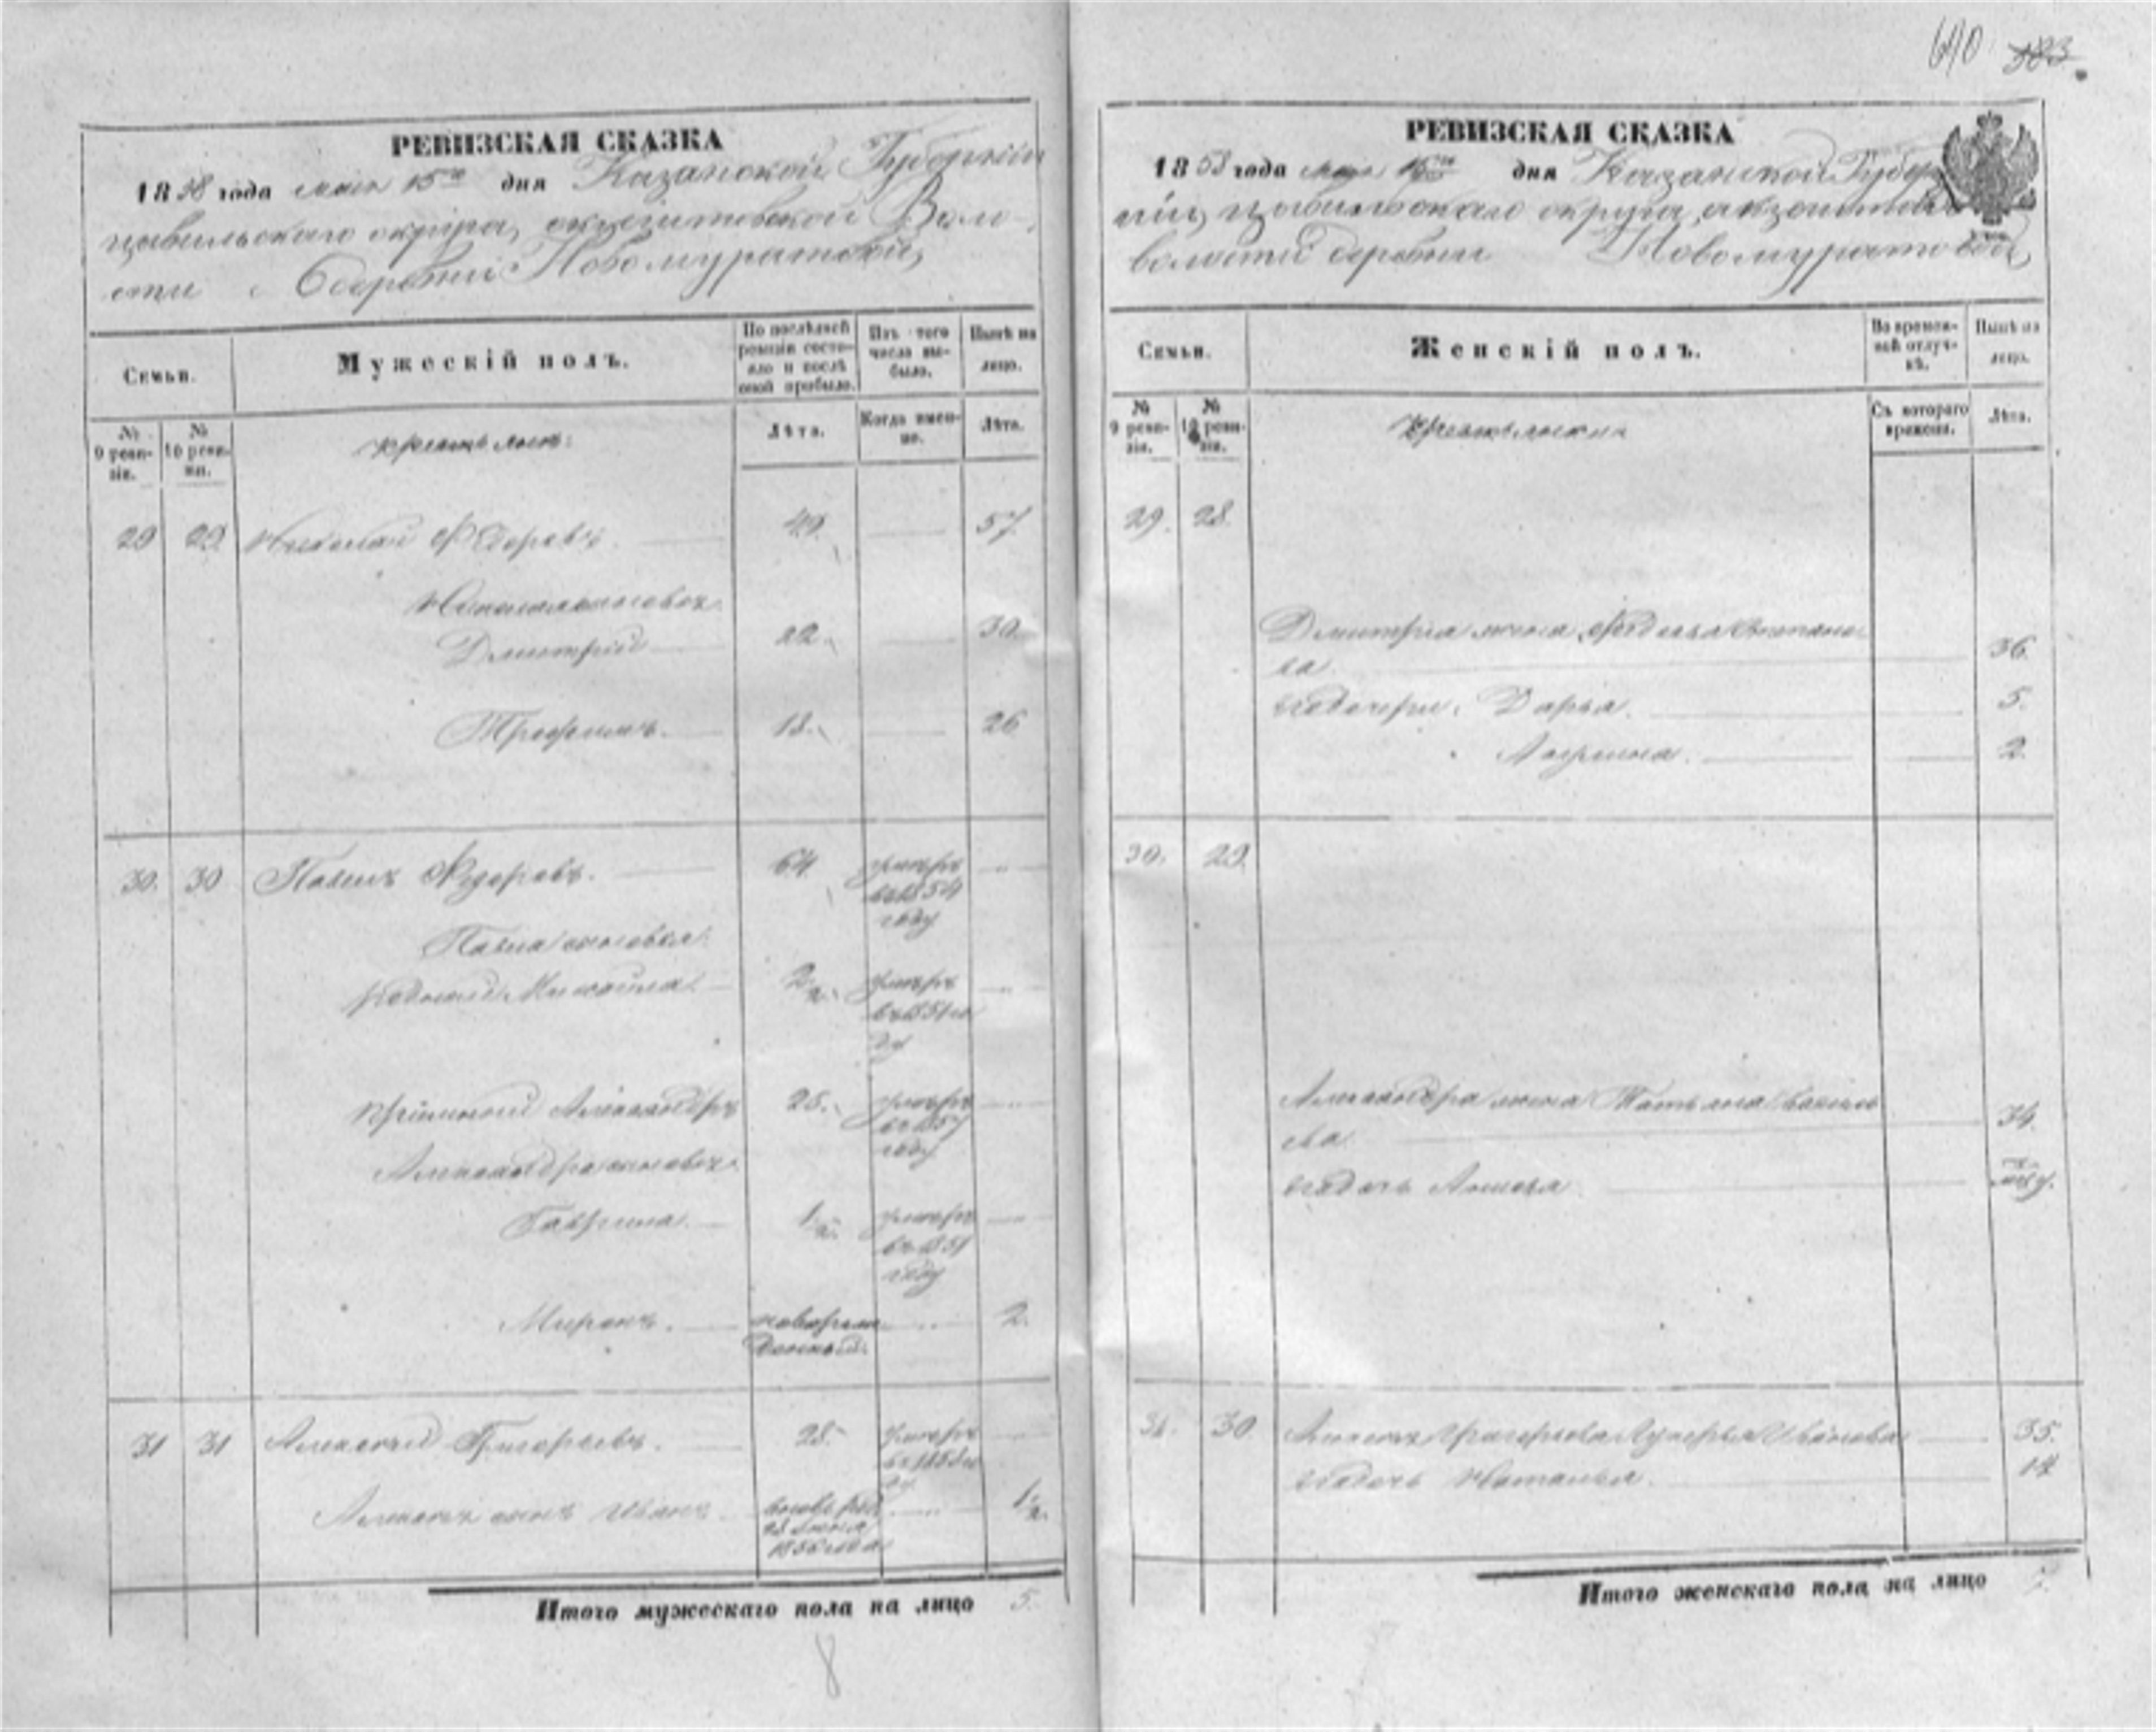 640 383
РЕВИЗСКАЯ СКАЗКА
1858 года мая 15го дня Казанской Губернiи
цивильскаго округа, Воло-
сти Деревни Новомуратской,
Семьи.
Мужескiй полъ.
По послѣдней ревизiи состояло и послѣ оной прибыло.
Изъ того числа выбыло.
Нынѣ на лицо.
№ 9 ревизiи.
№ 10 ревизiи.
Лѣта.
Когда именно.
Лѣта.
29 29 Николай Ѳедоровъ. 49. 57.
Николая сыновья
Дмитрiй 22. 30.
Трофимъ. 18. 26
30. 30 Павелъ Ѳедоровъ. 64 умеръ
въ 1854
году
Павла сыновья
Михайла 2 умеръ
въ 1851 го
ду
Александръ 28. умеръ
въ 1857
году
Александра сыновья
Гаврила. 1/2. умеръ
въ 1851
году
Миронъ. новорож
денный. 2.
31 31 Алексей Григорьевъ. 28. умеръ
Алексея сынъ Иванъ
1856 года
1 1/2.
Итого мужескаго пола на лицо 5.
8
РЕВИЗСКАЯ СКАЗКА
1858 года мая 15го дня Казанской Губер
нiи, цивильскаго округа,
волости деревни Новомуратской,
Семьи.
Женскiй полъ.
Во временной отлучкѣ.
Нынѣ на лицо.
№ 9 ревизiи.
№ 10 ревизiи.
Съ котораго времени.
Лѣта.
29. 28.
Дмитрiя жена Степано
ва. 36.
егодочери. Дарья. 5.
2.
30. 29.
Александра жена Татьяна Василь
ева. 34.
егодочь
31. 30. Алексея Григорьева Лукерья Иванова 35.
егодочь Наталья. 14
Итого женскаго пола на лицо 7.